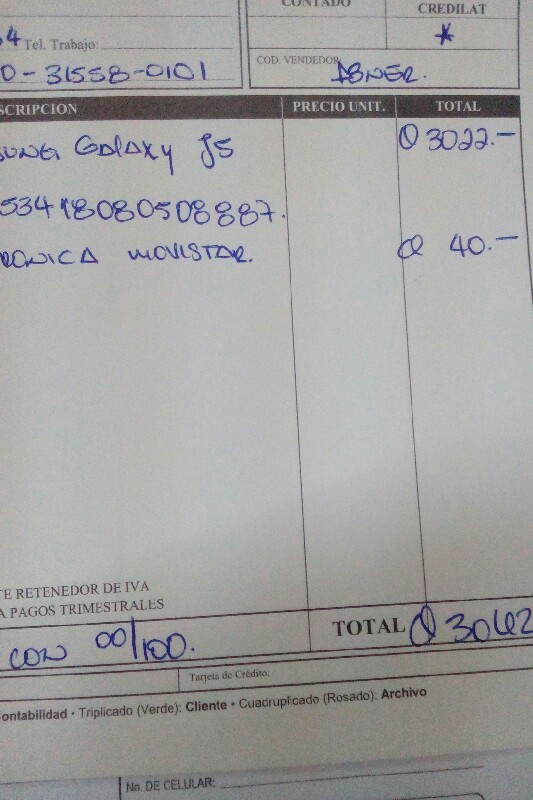 CONTADO CREDILAT
4 Tel. Trabajo: *
0-31558-0101 COD. VENDEDOR ABNER.
SCRIPCION PRECIO UNIT. TOTAL
SUNG GALAXY J5 Q 3022.-
53418080508887.
RONICA MOVISTAR. Q 40.-
TE RETENEDOR DE IVA
A PAGOS TRIMESTRALES
CON 00/100. TOTAL Q 3062
Tarjeta de Crédito:
ontabilidad • Triplicado (Verde): Cliente • Cuadruplicado (Rosado): Archivo
No. DE CELULAR: